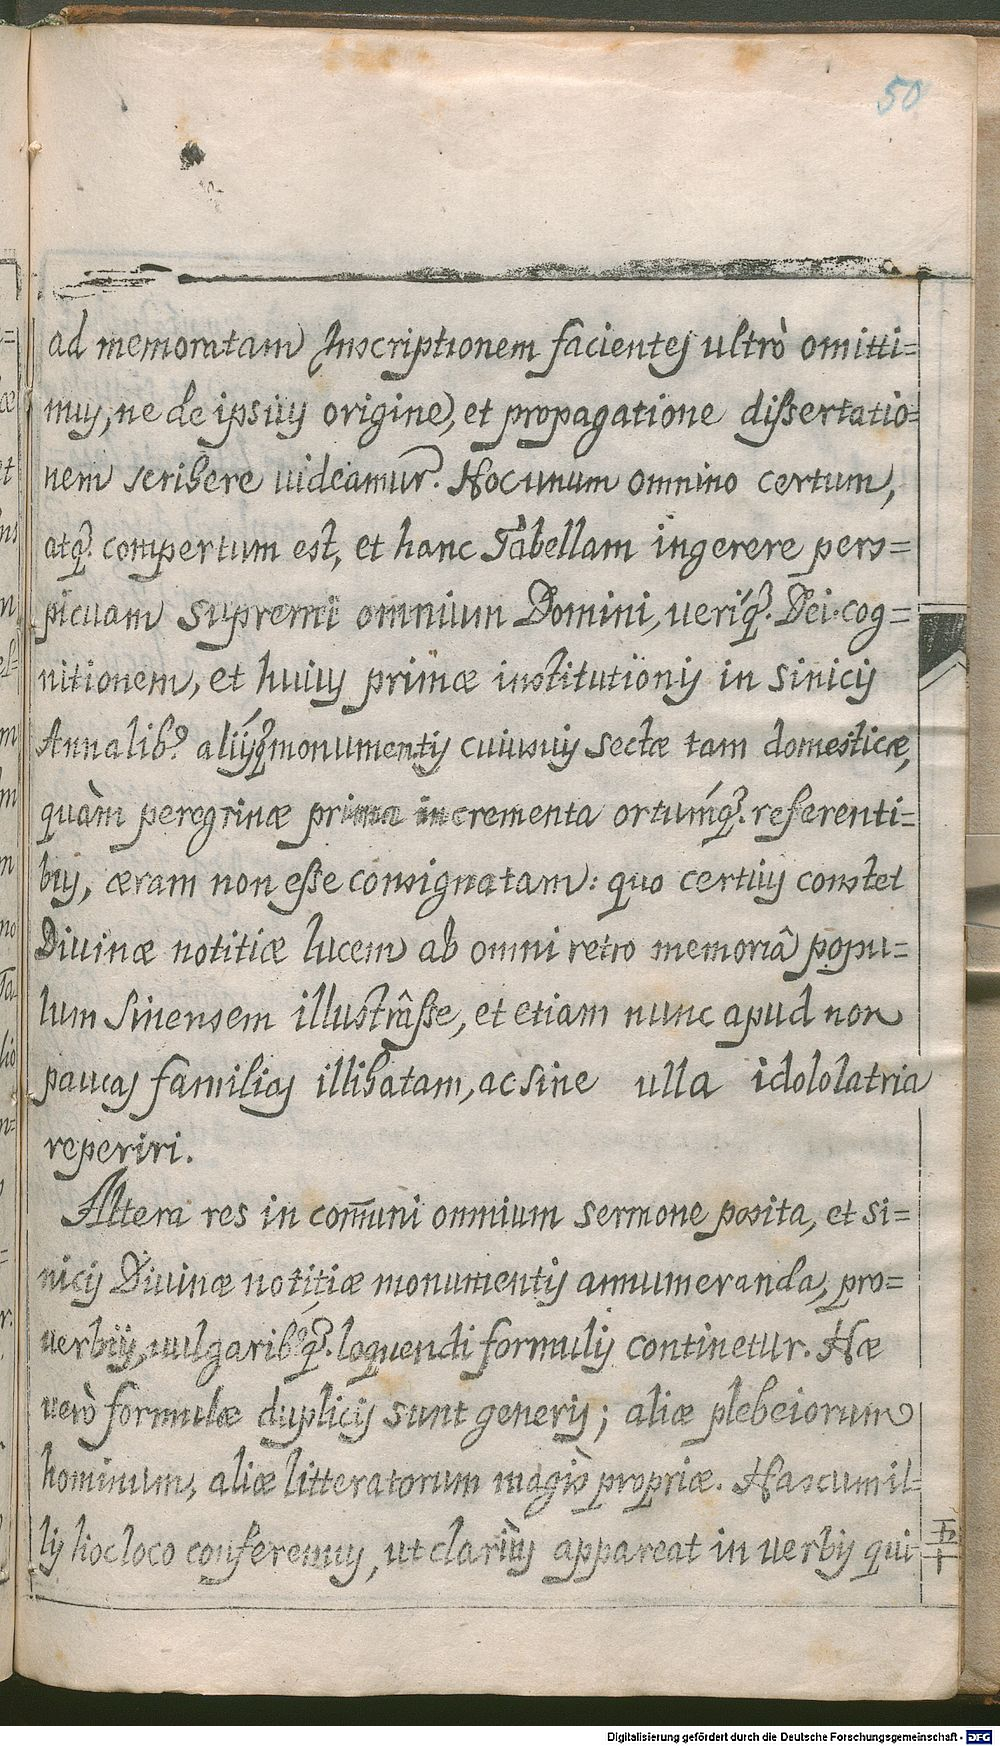 50
ad memoratam Inscriptionem facientes ultrò omitti=
mus, ne de ipsius origine, et propagatione dissertatio=
nem scribere uideamur. Hoc unum omnino certum,
atq. compertum est, et hanc Tabellam ingerere pers=
picuam supremi omnium Domini, ueriq́. Dei cog=
nitionem, et huius primæ institutionis in Sinicis
Annalib9 aliisq́ monumentis cuiusuis sectæ tam domesticæ,
quàm peregrinæ prima incrementa ortumq́. referenti=
bus, æram non esse consignatam: quo certius constet
Diuinæ notitiæ lucem ab omni retro memoriâ popu=
lum Sinensem illustrâsse, et etiam nunc apud non
paucas familias illibatam, ac sine ulla idololatria
reperiri.
Altera res in com̅uni omnium sermone posita, et si=
nicis Diuinæ notitiæ monumentis annumeranda, pro=
uerbiis, uulgarib9q́. loquendi formulis continetur. Hæ
uerò formulæ duplicis sunt generis; aliæ plebeiorum
hominum, aliæ litteratorum magis propriæ. Has cum il=
lis hoc loco conferemus, ut clariùs appareat in uerbis qui-
五十
Digitalisierung gefördert durch die Deutsche Forschungsgemeinschaft - DFG